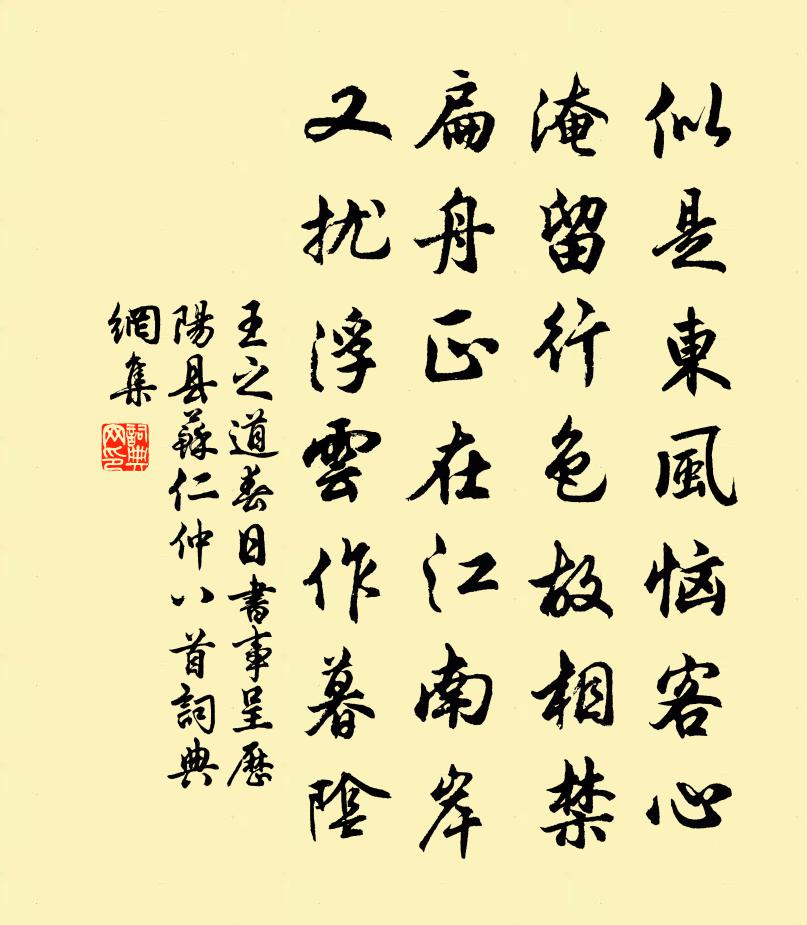 似是東風恼客心
淹留行色故相禁
扁舟正在江南岸
又扰浮雲作暮陰
王之道春日書事呈歷
陽县蘇仁仲八首詞典
網集
詞典
网印